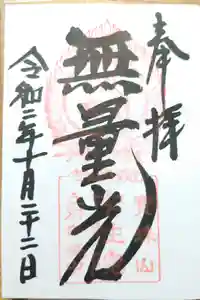 奉拝
無量光
令和二年十月二十二日